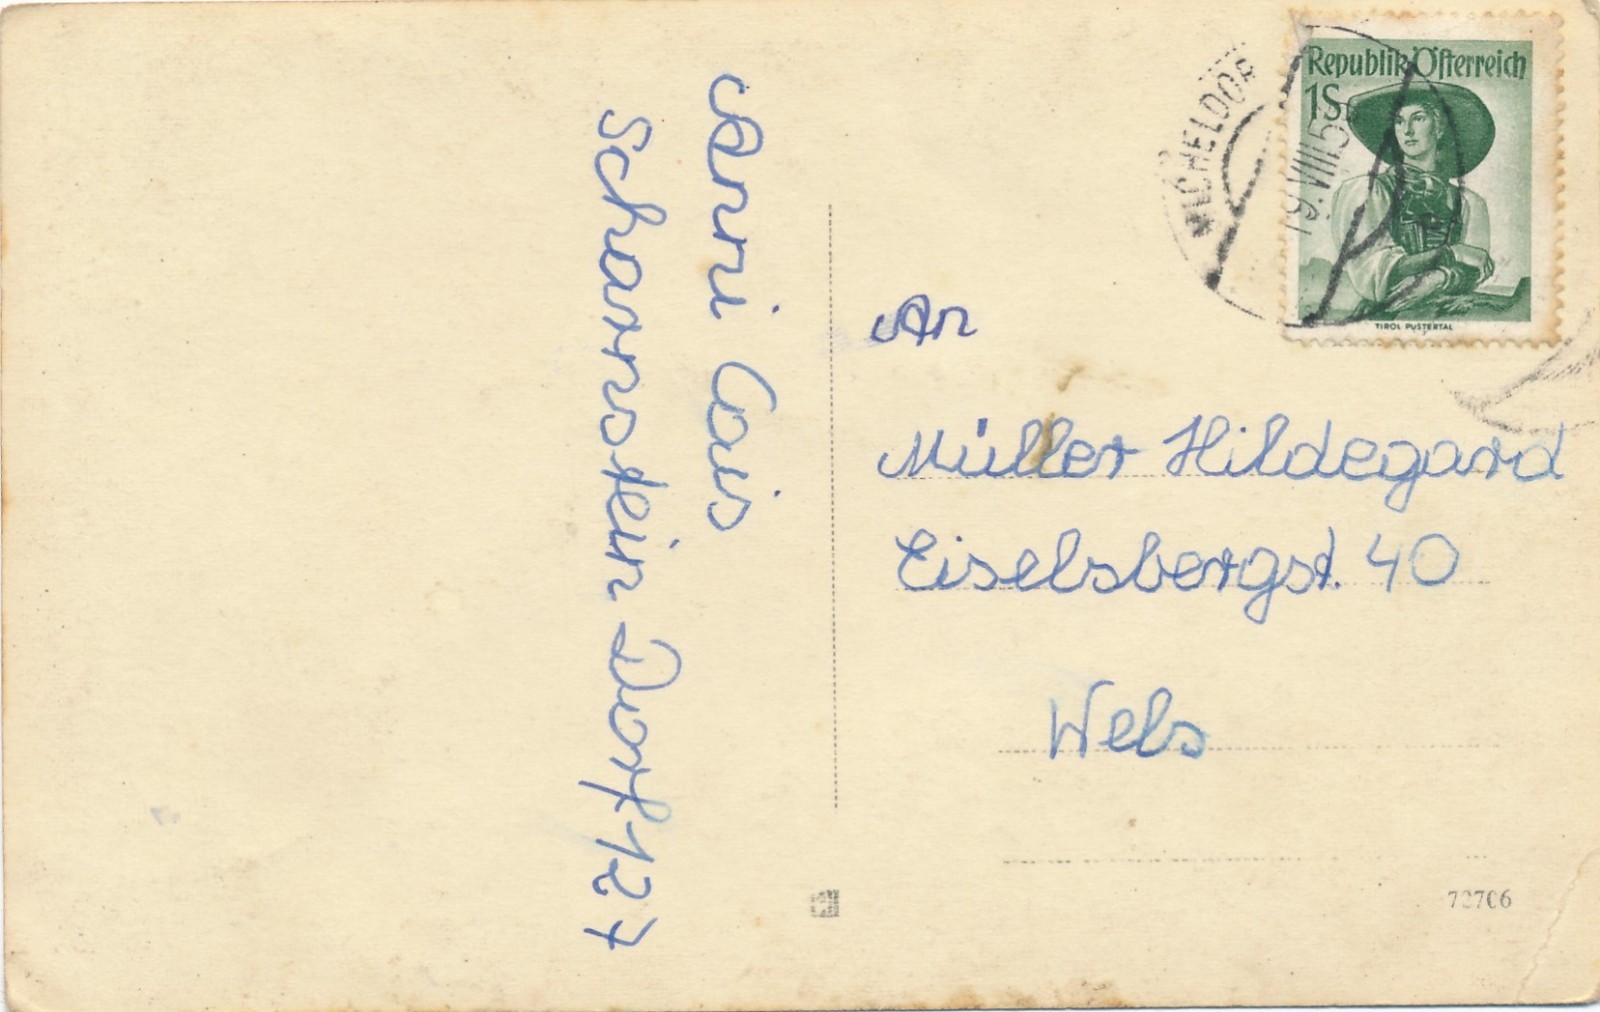 Anni Cais
Scharnstein Dorf 127
MICHELDORF
19.VIII.5
Republik Österreich
1S
TIROL PUSTERTAL
An
Müller Hildegard
Eiselsbergst. 40
Wels
72706